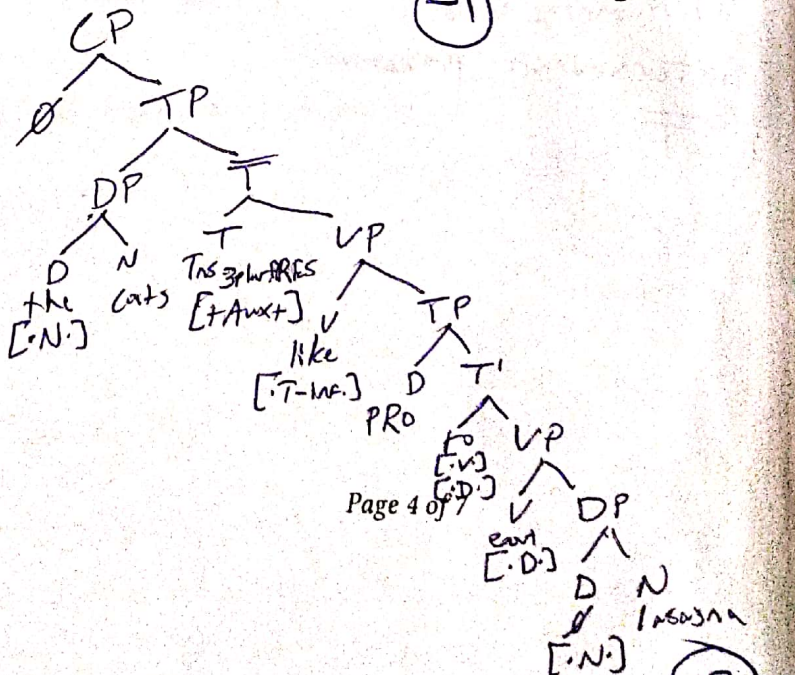 -1
CP
∅ TP
DP T
D N T VP
the cats Tns 3plurPRES
[·N·] [+Aux+] V TP
like D T'
[·T-Inf.] PRO
to VP
[·V·]
[·D·]
Page 4 of 7 V DP
eat
[·D·] D N
∅ lasagna
[·N·]